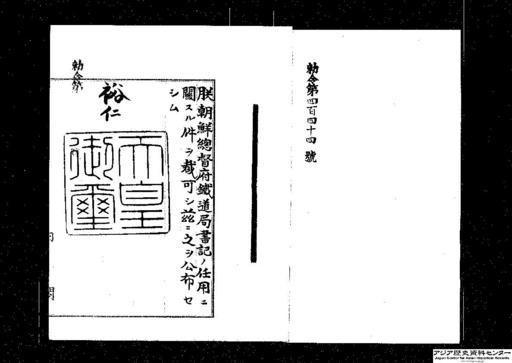 勅令第四百四十四號
朕朝鮮總督府鐵道局書記ノ任用ニ
關スル件ヲ裁可シ茲ニ之ヲ公布セ
シム
裕仁
天皇
御璽
勅令第
アジア歴史資料センター
Japan Center for Asian Historical Records